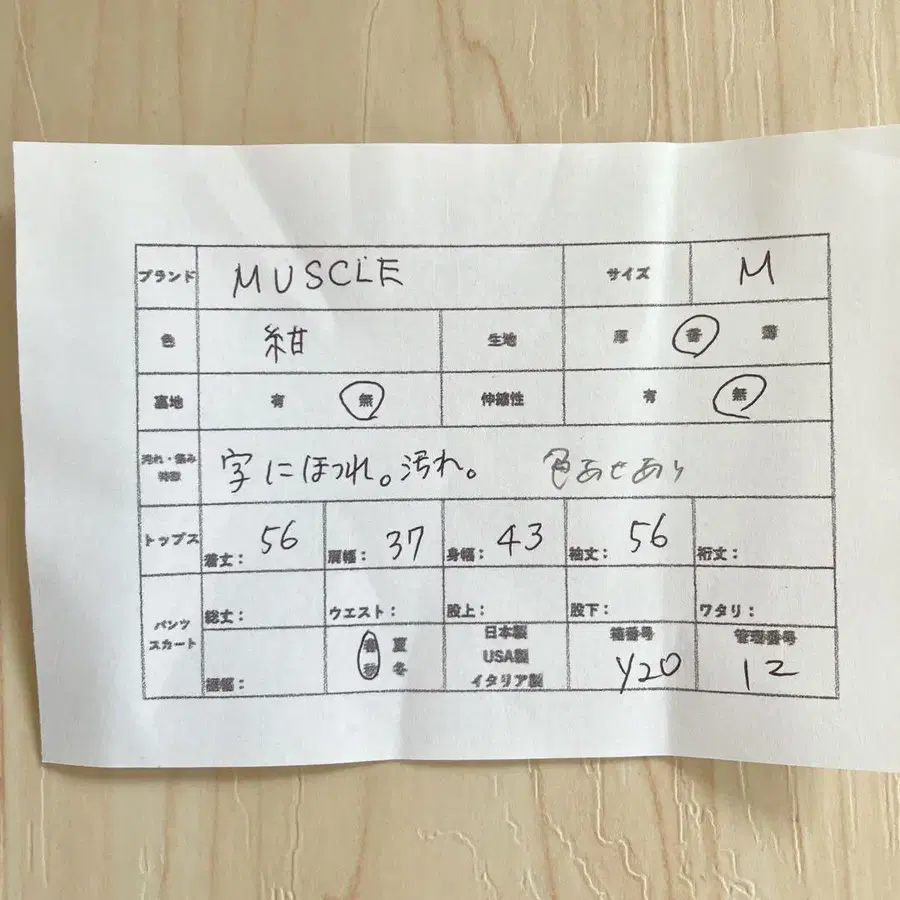 ブランド MUSCLE サイズ M
色 紺 生地 厚 普 薄
裏地 有 無 伸縮性 有 無
汚れ・傷み 字にほつれ。汚れ。 色あせあり
特徴
トップス 着丈: 56 肩幅: 37 身幅: 43 袖丈: 56 裄丈:
パンツ スカート 総丈: ウエスト: 股上: 股下: ワタリ:
裾幅: 春 夏 秋 冬 日本製 USA製 イタリア製 箱番号 Y20 管理番号 12